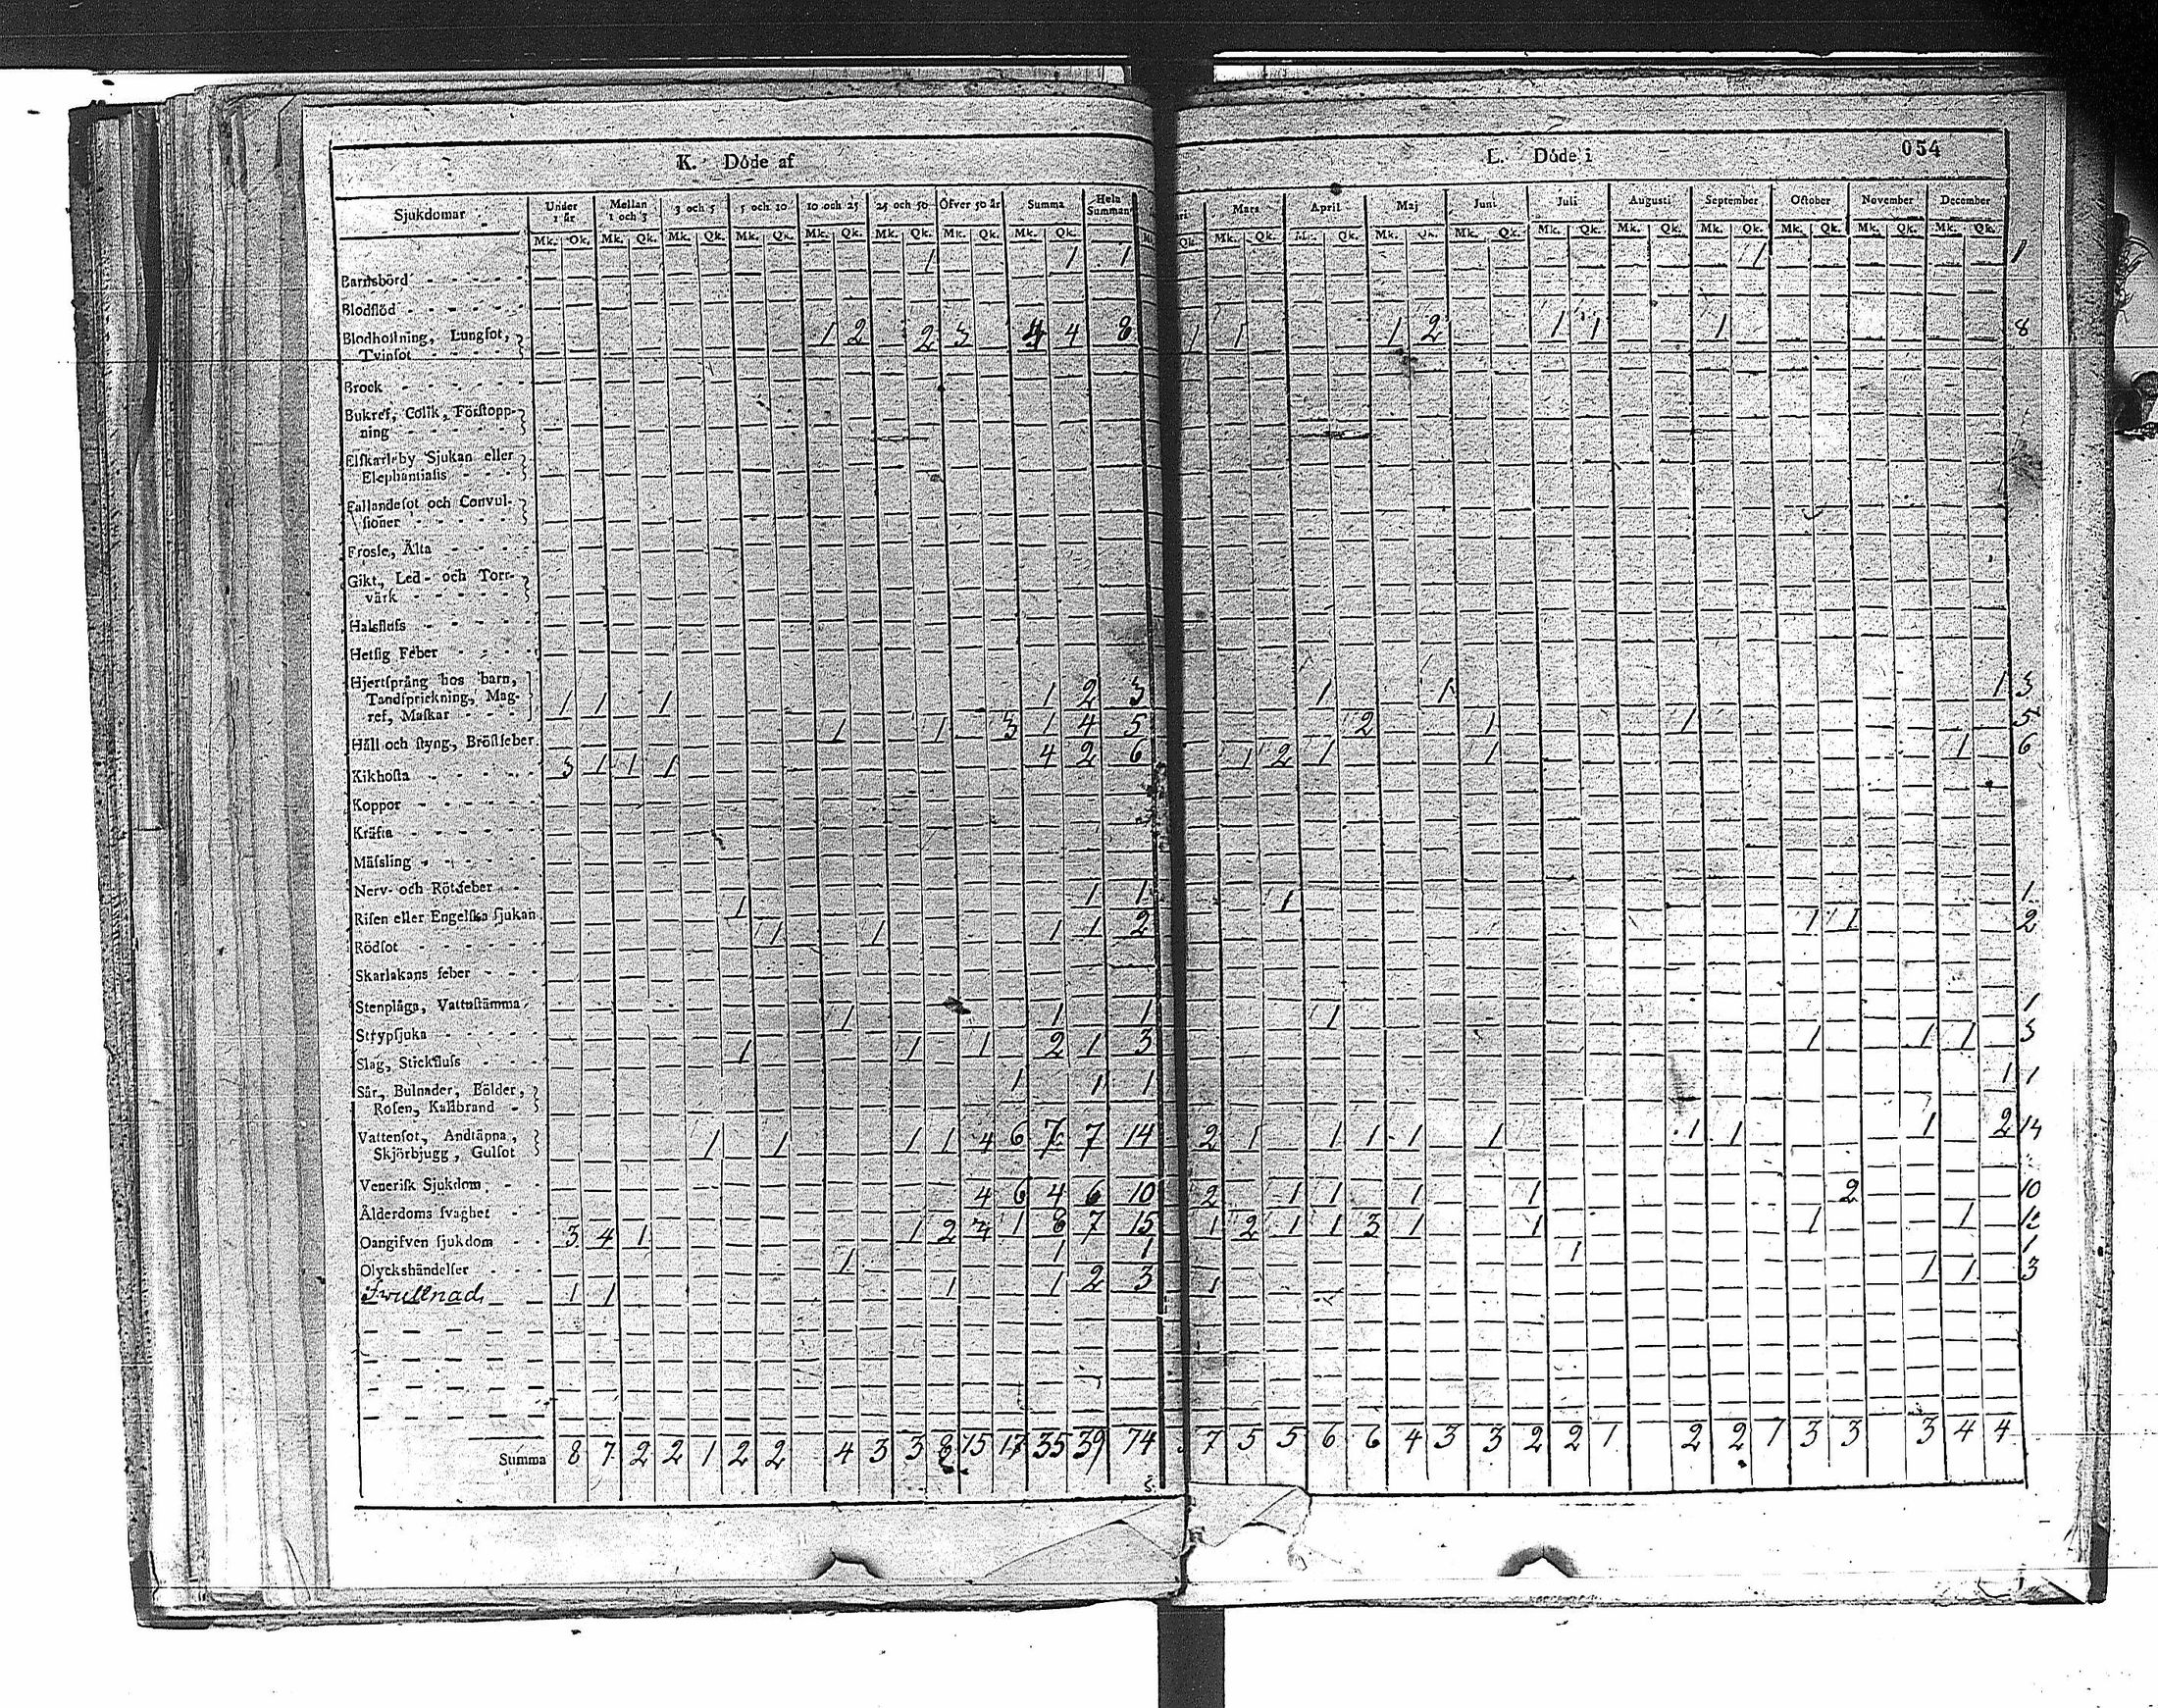 K. Döde af
L. Döde i
054
Sjukdomar Under 1 år Mellan 1 och 3 3 och 5 5 och 10 10 och 25 25 och 50 Öfver 50 år Summa Hela Summan Mars April Maj Juni Juli Augusti September October November December
Mk. Qk. Mk. Qk. Mk. Qk. Mk. Qk. Mk. Qk. Mk. Qk. Mk. Qk. Mk. Qk. Qk. Mk. Qk. Mk. Qk. Mk. Qk. Mk. Qk. Mk. Qk. Mk. Qk. Mk. Qk. Mk. Qk. Mk. Qk. Mk. Qk.
Barnsbörd 1 1 1 1 1
Blodflöd
Blodhostning, Lungsot,
Tvinsot 1 2 2 3 4 4 8 1 1 1 2 1 1 1 8
Brock
Bukref, Colik, Förstopp-
ning
Elfkarleby Sjukan eller
Elephantiasis
Fallandesot och Convul-
sioner
Frosse, Älta
Gikt, Led- och Torr-
värk
Halsfluss
Hetsig Feber
Hjertsprång hos barn,
Tandsprickning, Mag-
ref, Maskar 1 1 1 1 2 3 1 1 1 3
Håll och styng, Bröstfeber 1 1 3 1 4 5 2 1 1 5
Kikhosta 3 1 1 1 4 2 6 1 2 1 1 1 6
Koppor
Kräfta
Mässling
Nerv- och Rötfeber
Risen eller Engelska sjukan 1 1 1 1 1
Rödsot 1 1 1 1 2 1 1 2
Skarlakans feber
Stenplåga, Vattustämma
Strypsjuka 1 1 1 1 1
Slag, Stickfluss 1 1 1 2 1 3 1 1 1 3
Sår, Bulnader, Bölder,
Rosen, Kallbrand 1 1 1 1 1
Vattensot, Andtäppa,
Skjörbjugg, Gulsot 1 1 1 1 4 6 7 7 14 2 1 1 1 1 1 1 1 1 2 14
Venerisk Sjukdom
Ålderdoms svaghet 4 6 4 6 10 2 1 1 1 1 2 10
Oangifven sjukdom 3 4 1 1 2 1 8 7 15 1 2 1 1 3 1 1 1 1
Olyckshändelser 1 1 1 1 1
Swullnad 1 1 1 1 2 3 1 1 1 3
Summa 8 7 2 2 1 2 2 4 3 3 8 15 17 35 39 74 7 5 5 6 6 4 3 3 2 2 1 2 2 1 3 3 3 4 4